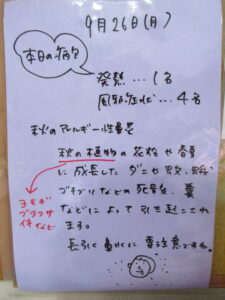 9月26日(月)
本日の病欠
発熱…1名
風邪症状…4名
秋のアレルギー性鼻炎
秋の植物の花粉や
に成長したダニや
ゴキブリなどの死骸、糞
などによって引き起こされ
ます。
長引く鼻水に要注意ですね。
ヨモギ
ブタクサ
イネなど